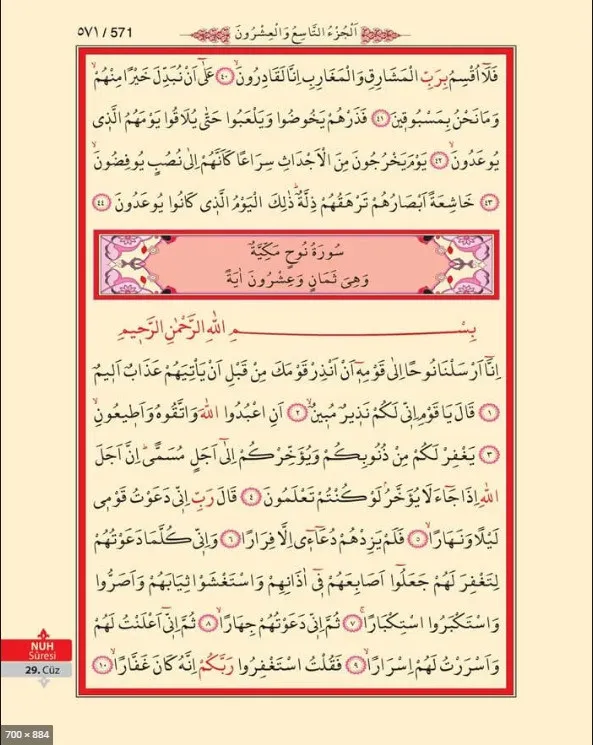 ٥٧١ / 571
اَلْجُزْءُ التَّاسِعُ وَالْعِشْرُونَ
فَلَٓا اُقْسِمُ بِرَبِّ الْمَشَارِقِ وَالْمَغَارِبِ اِنَّا لَقَادِرُونَۙ ﴿٤٠﴾ عَلٰٓى اَنْ نُبَدِّلَ خَيْرًا مِنْهُمْۙ
وَمَا نَحْنُ بِمَسْبُوقٖينَ ﴿٤١﴾ فَذَرْهُمْ يَخُوضُوا وَيَلْعَبُوا حَتّٰى يُلَاقُوا يَوْمَهُمُ الَّذٖى
يُوعَدُونَۙ ﴿٤٢﴾ يَوْمَ يَخْرُجُونَ مِنَ الْاَجْدَاثِ سِرَاعًا كَاَنَّهُمْ اِلٰى نُصُبٍ يُوفِضُونَۙ
﴿٤٣﴾ خَاشِعَةً اَبْصَارُهُمْ تَرْهَقُهُمْ ذِلَّةٌؕ ذٰلِكَ الْيَوْمُ الَّذٖى كَانُوا يُوعَدُونَ ﴿٤٤﴾
سُورَةُ نُوحٍ مَكِّيَّةٌ
وَهِىَ ثَمَانٍ وَعِشْرُونَ اٰيَةً
بِسْمِ اللّٰهِ الرَّحْمٰنِ الرَّحٖيمِ
اِنَّٓا اَرْسَلْنَا نُوحًا اِلٰى قَوْمِهٖٓ اَنْ اَنْذِرْ قَوْمَكَ مِنْ قَبْلِ اَنْ يَاْتِيَهُمْ عَذَابٌ اَلٖيمٌ
﴿١﴾ قَالَ يَا قَوْمِ اِنّٖى لَكُمْ نَذٖيرٌ مُبٖينٌۙ ﴿٢﴾ اَنِ اعْبُدُوا اللّٰهَ وَاتَّقُوهُ وَاَطٖيعُونِۙ
﴿٣﴾ يَغْفِرْ لَكُمْ مِنْ ذُنُوبِكُمْ وَيُؤَخِّرْكُمْ اِلٰٓى اَجَلٍ مُسَمًّىؕ اِنَّ اَجَلَ
اللّٰهِ اِذَا جَٓاءَ لَا يُؤَخَّرُۢ لَوْ كُنْتُمْ تَعْلَمُونَ ﴿٤﴾ قَالَ رَبِّ اِنّٖى دَعَوْتُ قَوْمٖى
لَيْلًا وَنَهَارًاۙ ﴿٥﴾ فَلَمْ يَزِدْهُمْ دُعَٓاءٖٓى اِلَّا فِرَارًا ﴿٦﴾ وَاِنّٖى كُلَّمَا دَعَوْتُهُمْ
لِتَغْفِرَ لَهُمْ جَعَلُٓوا اَصَابِعَهُمْ فٖٓى اٰذَانِهِمْ وَاسْتَغْشَوْا ثِيَابَهُمْ وَاَصَرُّوا
وَاسْتَكْبَرُوا اسْتِكْبَارًاۚ ﴿٧﴾ ثُمَّ اِنّٖى دَعَوْتُهُمْ جِهَارًاۙ ﴿٨﴾ ثُمَّ اِنّٖٓى اَعْلَنْتُ لَهُمْ
وَاَسْرَرْتُ لَهُمْ اِسْرَارًاۙ ﴿٩﴾ فَقُلْتُ اسْتَغْفِرُوا رَبَّكُمْ اِنَّهُ كَانَ غَفَّارًاۙ ﴿١٠﴾
NUH
Sûresi
29. Cüz
700 × 884